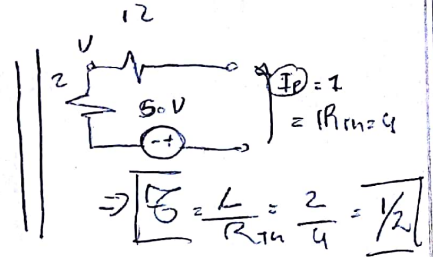 12
V
2
5.0V
- +
Ip = 1
= Rth = 4
⇒ τ = L / RTH = 2 / 4 = 1/2